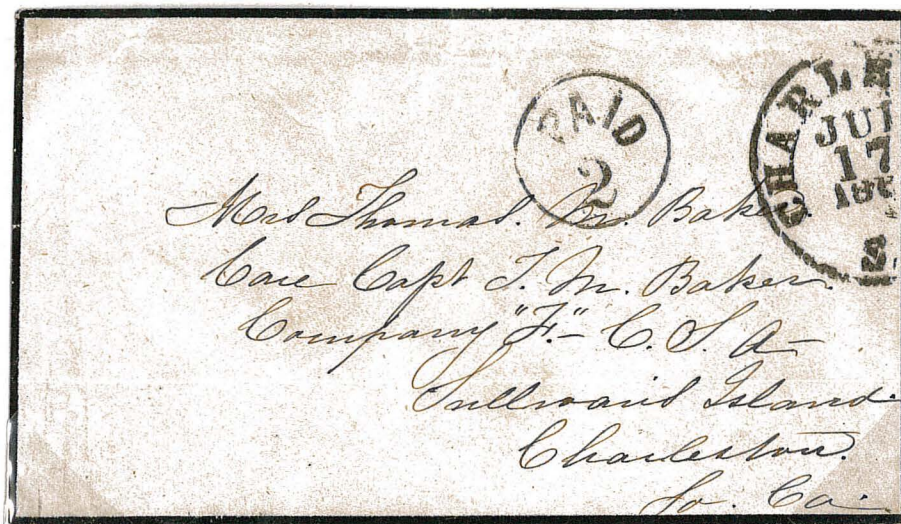 PAID
2
CHARLE
JUL
17
186
S.
Mrs Thomas. M. Baker.
Care Capt T. M. Baker.
Company "F." - C. S. A -
Sullivans Island.
Charleston.
So. Ca.